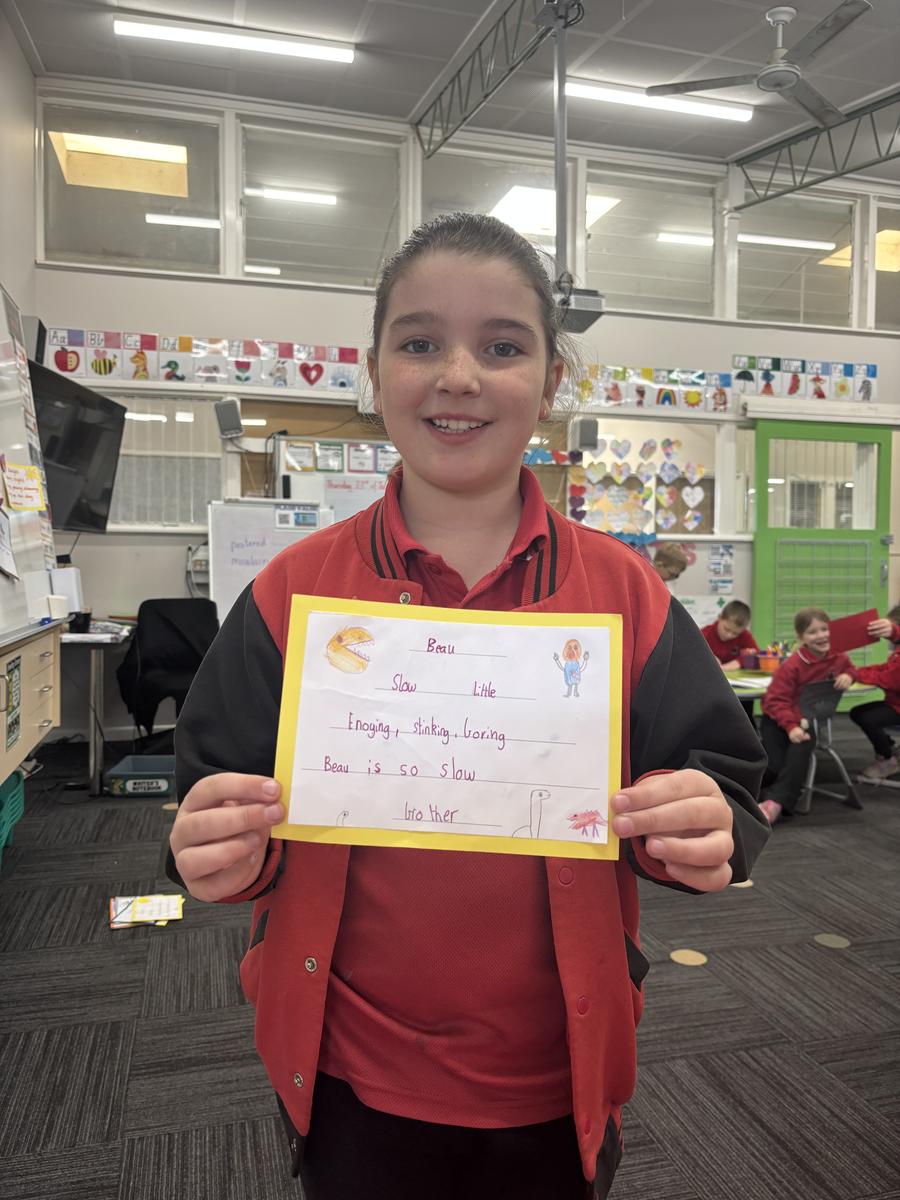 Aa Bb Cc Dd
Thursday 23rd of
WRITER'S NOTEBOOK
Beau
Slow Little
Enoying, stinking, boring
Beau is so slow
brother